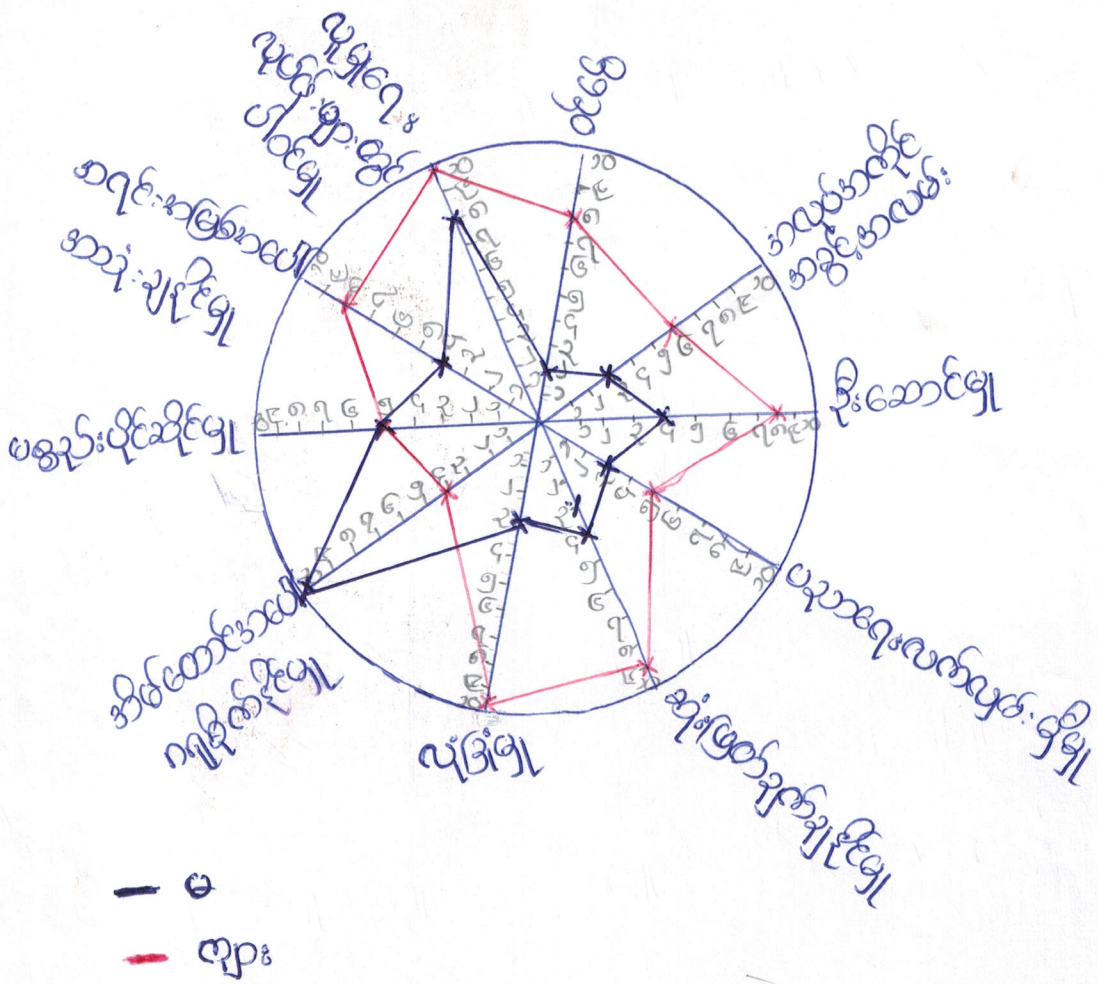 လူမှုရေး
လုပ်ငန်းများတွင်
ပါဝင်မှု
ဝင်ငွေ
အလုပ်အကိုင်
အခွင့်အလမ်း
ဦးဆောင်မှု
ပညာရေးလက်လှမ်းမှီမှု
ဆုံးဖြတ်ချက်ချနိုင်မှု
လုံခြုံမှု
အိမ်ထောင်အပေါ်
ဂရုစိုက်နိုင်မှု
ပစ္စည်းပိုင်ဆိုင်မှု
အရင်းအမြစ်အပေါ်
အသုံးချနိုင်မှု
မ
ကျား